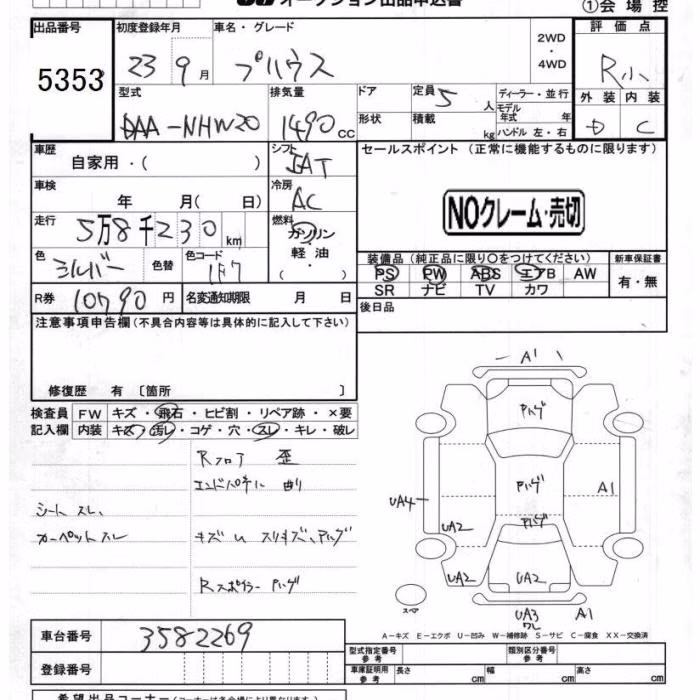 オークション出品申込書
①会場控
出品番号
5353
初度登録年月
23 9月
車名・グレード
プハウス
2WD
・
4WD
評価点
R小
外装 内装
D C
型式
DAA-NHW20
排気量
1490cc
ドア
形状
定員 5人
積載 kg
ディーラー・並行
モデル年式 年
ハンドル 左・右
車歴
自家用・( )
シフト
IAT
セールスポイント (正常に機能するものに限ります)
NOクレーム・売切
車検
年 月( 日)
冷房
AC
走行
5万8千230km
燃料
ガソリン
軽油
( ・ )
色
シルバー
色替
色コード
1F7
装備品 (純正品に限り○をつけてください)
PS PW ABS エアB AW
SR ナビ TV カワ
新車保証書
有・無
R券 10790円
名変通知期限 月 日
後日品
注意事項申告欄 (不具合内容等は具体的に記入して下さい)
修復歴 有 〔箇所 〕
検査員
記入欄
FW キズ・飛石・ヒビ割・リペア跡・×要
内装 キズ・汚レ・コゲ・穴・スレ・キレ・破レ
Rフロア 歪
エンドパネル 曲り
シート スレ、
カーペットスレ
キズ U スリキズ、Pハゲ
Rスポイラー Pハゲ
A1
Pハゲ
Pハゲ
Pハゲ
UA4
UA2
A1
UA2
UA2
スペア
UA3
ワレ
A1
A-キズ E-エクボ U-凹み W-補修跡 S-サビ C-腐食 XX-交換済
車台番号
3582269
登録番号
型式指定番号
参考
類別区分番号
参考
車庫証明用
参考
長さ cm
幅 cm
高さ cm
希望出品コーナー (コーナーは各会場により異なります)